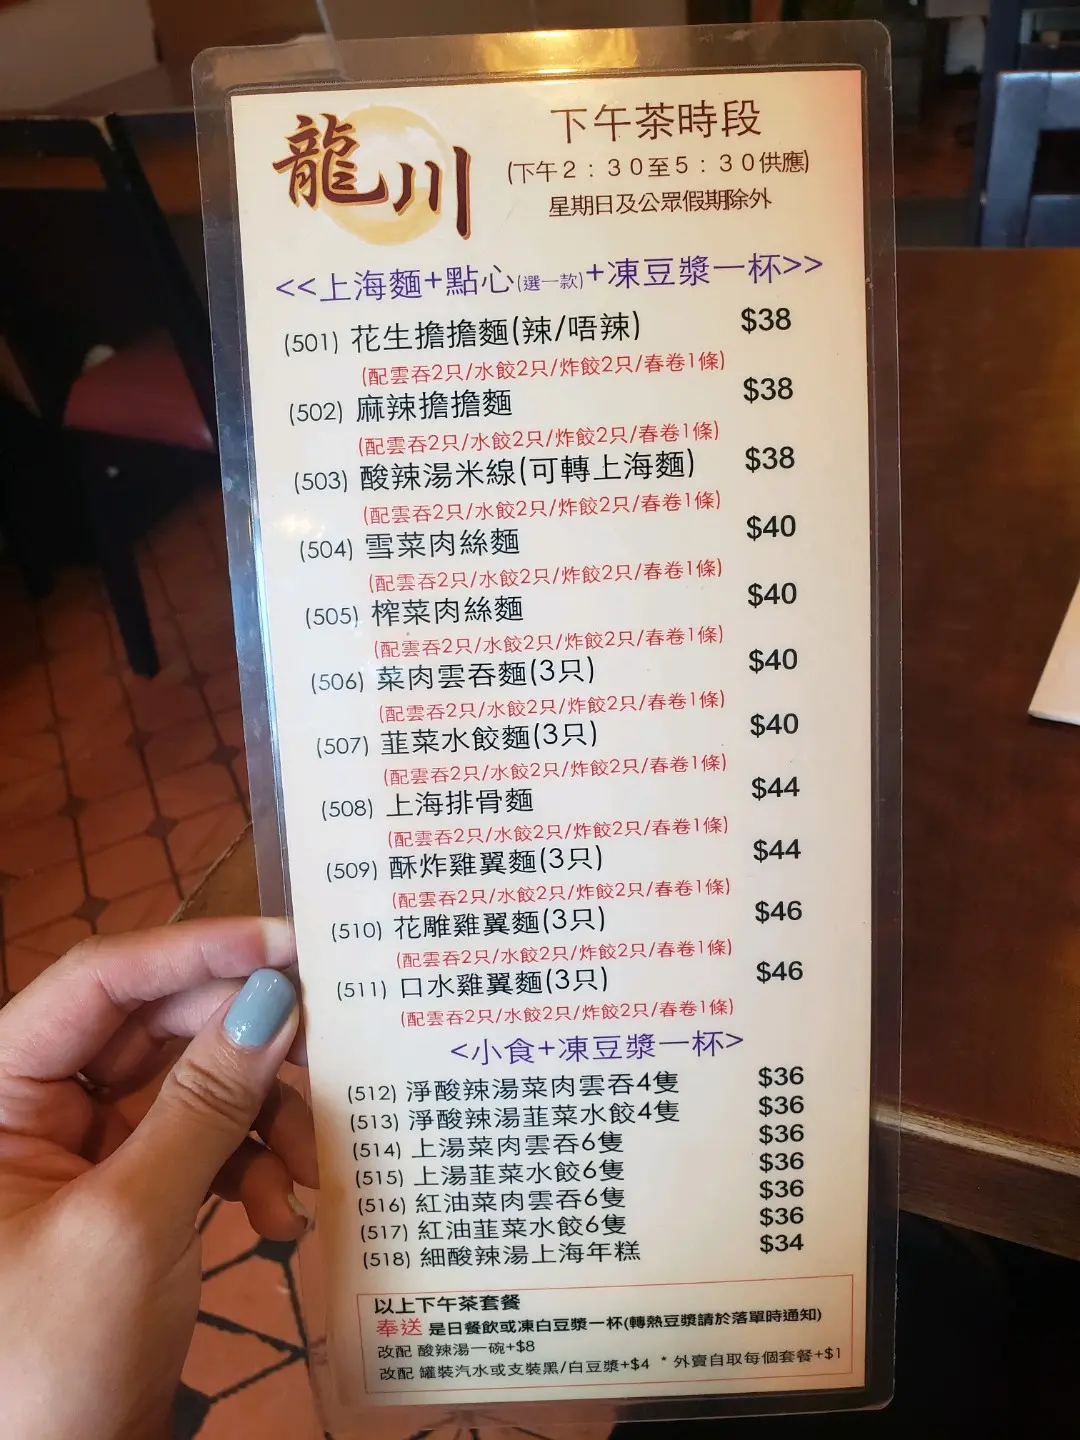 龍川
下午茶時段
(下午2：30至5：30供應)
星期日及公眾假期除外
<<上海麵+點心(選一款)+凍豆漿一杯>>
(501) 花生擔擔麵(辣/唔辣) $38
(配雲吞2只/水餃2只/炸餃2只/春卷1條)
(502) 麻辣擔擔麵 $38
(配雲吞2只/水餃2只/炸餃2只/春卷1條)
(503) 酸辣湯米線(可轉上海麵) $38
(配雲吞2只/水餃2只/炸餃2只/春卷1條)
(504) 雪菜肉絲麵 $40
(配雲吞2只/水餃2只/炸餃2只/春卷1條)
(505) 榨菜肉絲麵 $40
(配雲吞2只/水餃2只/炸餃2只/春卷1條)
(506) 菜肉雲吞麵(3只) $40
(配雲吞2只/水餃2只/炸餃2只/春卷1條)
(507) 韮菜水餃麵(3只) $40
(配雲吞2只/水餃2只/炸餃2只/春卷1條)
(508) 上海排骨麵 $44
(配雲吞2只/水餃2只/炸餃2只/春卷1條)
(509) 酥炸雞翼麵(3只) $44
(配雲吞2只/水餃2只/炸餃2只/春卷1條)
(510) 花雕雞翼麵(3只) $46
(配雲吞2只/水餃2只/炸餃2只/春卷1條)
(511) 口水雞翼麵(3只) $46
(配雲吞2只/水餃2只/炸餃2只/春卷1條)
<小食+凍豆漿一杯>
(512) 淨酸辣湯菜肉雲吞4隻 $36
(513) 淨酸辣湯韮菜水餃4隻 $36
(514) 上湯菜肉雲吞6隻 $36
(515) 上湯韮菜水餃6隻 $36
(516) 紅油菜肉雲吞6隻 $36
(517) 紅油韮菜水餃6隻 $36
(518) 細酸辣湯上海年糕 $34
以上下午茶套餐
奉送 是日餐飲或凍白豆漿一杯(轉熱豆漿請於落單時通知)
改配 酸辣湯一碗+$8
改配 罐裝汽水或支裝黑/白豆漿+$4 * 外賣自取每個套餐+$1